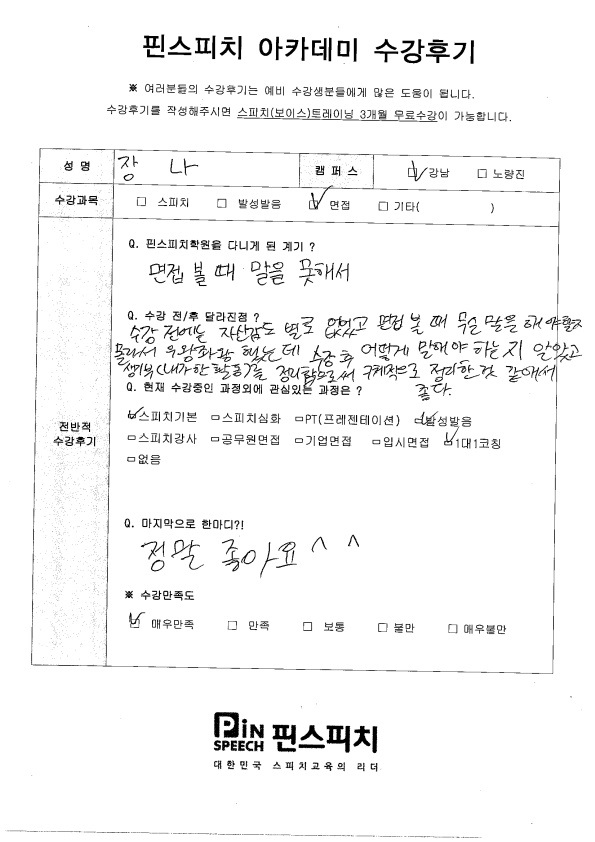 핀스피치 아카데미 수강후기
※ 여러분들의 수강후기는 예비 수강생분들에게 많은 도움이 됩니다.
수강후기를 작성해주시면 스피치(보이스)트레이닝 3개월 무료수강이 가능합니다.
성 명 장 나 캠 퍼 스 ☑ 강남 □ 노량진
수강과목 □ 스피치 □ 발성발음 ☑ 면접 □ 기타( )
Q. 핀스피치학원을 다니게 된 계기 ?
면접 볼 때 말을 못해서
Q. 수강 전/후 달라진점 ?
수강 전에는 자신감도 별로 없었고 면접 볼 때 무슨 말을 해야할지
몰라서 우왕좌왕 했는데 수강 후 어떻게 말해야 하는지 알았고
생기부(내가 한 활동)를 정리함으로써 구체적으로 정리한것 같애서
좋다.
Q. 현재 수강중인 과정외에 관심있는 과정은 ?
☑스피치기본 □스피치심화 □PT(프레젠테이션) ☑발성발음
전반적
수강후기
□스피치강사 □공무원면접 □기업면접 □입시면접 ☑1대1코칭
□없음
Q. 마지막으로 한마디?!
정말 좋아요 ^ ^
※ 수강만족도
☑ 매우만족 □ 만족 □ 보통 □ 불만 □ 매우불만
PiN
SPEECH 핀스피치
대한민국 스피치교육의 리더